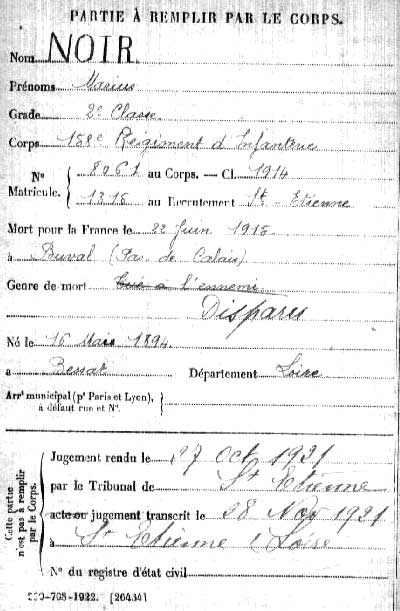 PARTIE À REMPLIR PAR LE CORPS.
Nom NOIR
Prénoms Marius
Grade 2e Classe
Corps 158e Régiment d'Infanterie
N° Matricule. 8061 au Corps. — Cl. 1914
1315 au Recrutement St-Etienne
Mort pour la France le 22 Juin 1915
à Buval (Pas de Calais)
Genre de mort Tué à l'ennemi
Disparu
Né le 16 Mars 1894
à Bessat Département Loire
Arrt municipal (pr Paris et Lyon),
à défaut rue et N°.
Cette partie n'est pas à remplir par le Corps.
Jugement rendu le 27 Oct 1921
par le Tribunal de St Etienne
acte ou jugement transcrit le 28 Nov 1921
à St Etienne Loire
N° du registre d'état civil
[26434]